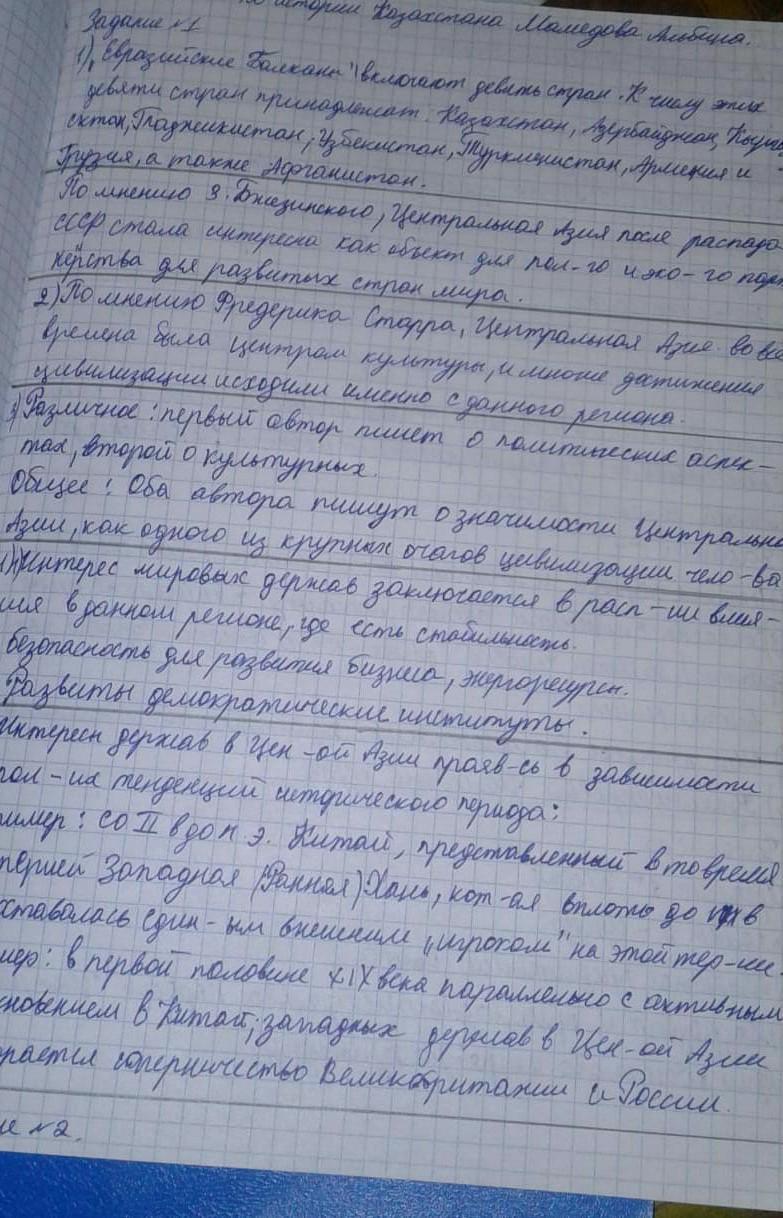 по истории Казахстана Мамедова Альбина.
Задание №1
1) „Евразийские Балканы" включают девять стран. К числу этих
девяти стран принадлежат: Казахстан, Азербайджан, Кыргы
зстан, Таджикистан, Узбекистан, Туркменистан, Армения и
Грузия, а также Афганистан.
По мнению З. Бжезинского, Центральная Азия после распада
СССР стала интересна как объект для пол-го и эко-го парт
нёрства для развитых стран мира.
2) По мнению Фредерика Старра, Центральная Азия во все
времена была центром культуры, и многие достижения
цивилизации исходили именно с данного региона.
3) Различное: первый автор пишет о политических аспек-
тах, второй о культурных.
Общее: Оба автора пишут о значимости Центрально
Азии, как одного из крупных очагов цивилизации чело-ва
1) Интерес мировых держав заключается в расп-ии влия-
ния в данном регионе, где есть стабильность.
безопасность для развития бизнеса, энергоресурсы.
Развиты демократические институты.
Интересы держав в Цен-ой Азии прояв-сь в зависимости
пол-их тенденций исторического периода:
ример: со II в до н.э. Китай, представленный в то время
перией Западная (Ранняя) Хань, кот-ая вплоть до в
ставалась един-ым внешним „игроком" на этой тер-ии.
мер: в первой половине XIX века параллельно с активным
кновением в Китай; западных держав в Цен-ой Азии
рается соперничество Великобритании и России.
е №2.